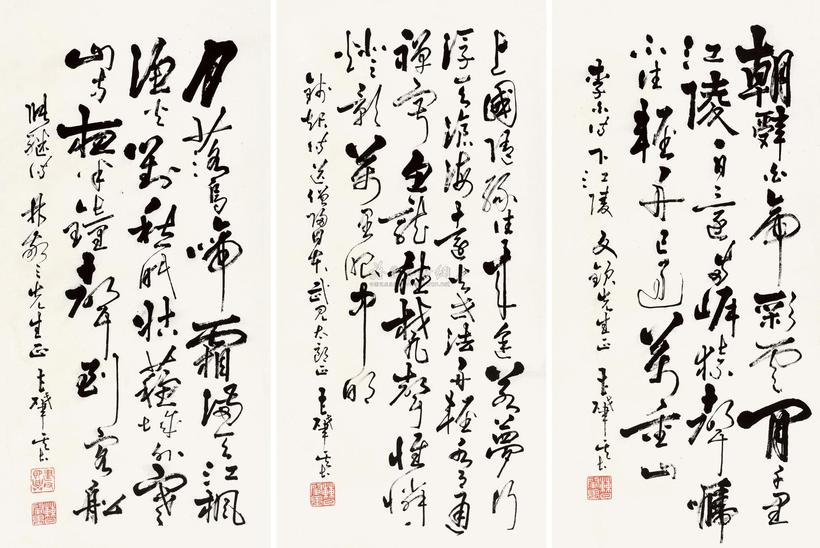 朝辭白帝彩雲間千里
江陵一日還兩岸猿聲啼
不住輕舟已過萬重山
李白詩下江陵 文欽先生正
上國隨緣住來途若夢行
浮天滄海遠去世法舟輕水月通
禪寂魚龍聽梵聲惟憐一
燈影萬里眼中明
錢起詩送僧歸日本 武見太郎正
月落烏啼霜滿天江楓
漁火對愁眠姑蘇城外寒
山寺夜半鐘聲到客船
張繼詩 林敬三先生正